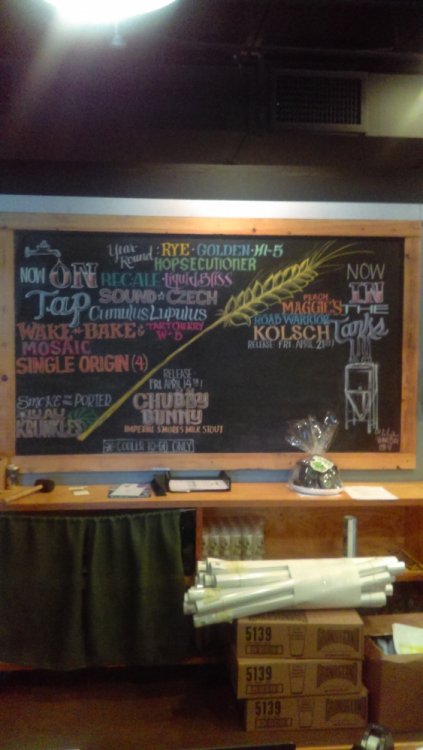 NOW ON Tap
Year-Round: RYE · GOLDEN · HI-5
HOPSECUTIONER
RECALL Liquid Bliss
SOUND CZECH
Cumulus Lupulus
WAKE-n-BAKE TART CHERRY W-B
MOSAIC
SINGLE ORIGIN (4)
SMOKE ON THE PORTER
KRUNKLES
RELEASE
FRI APRIL 14TH!
CHUBBY
BUNNY
IMPERIAL S'MORES MILK STOUT
COOLER TO-GO ONLY
NOW IN THE Tanks
PEACH
MAGGIE'S
ROAD WARRIOR
KOLSCH
RELEASE FRI APRIL 21ST!
5139
5139
5139